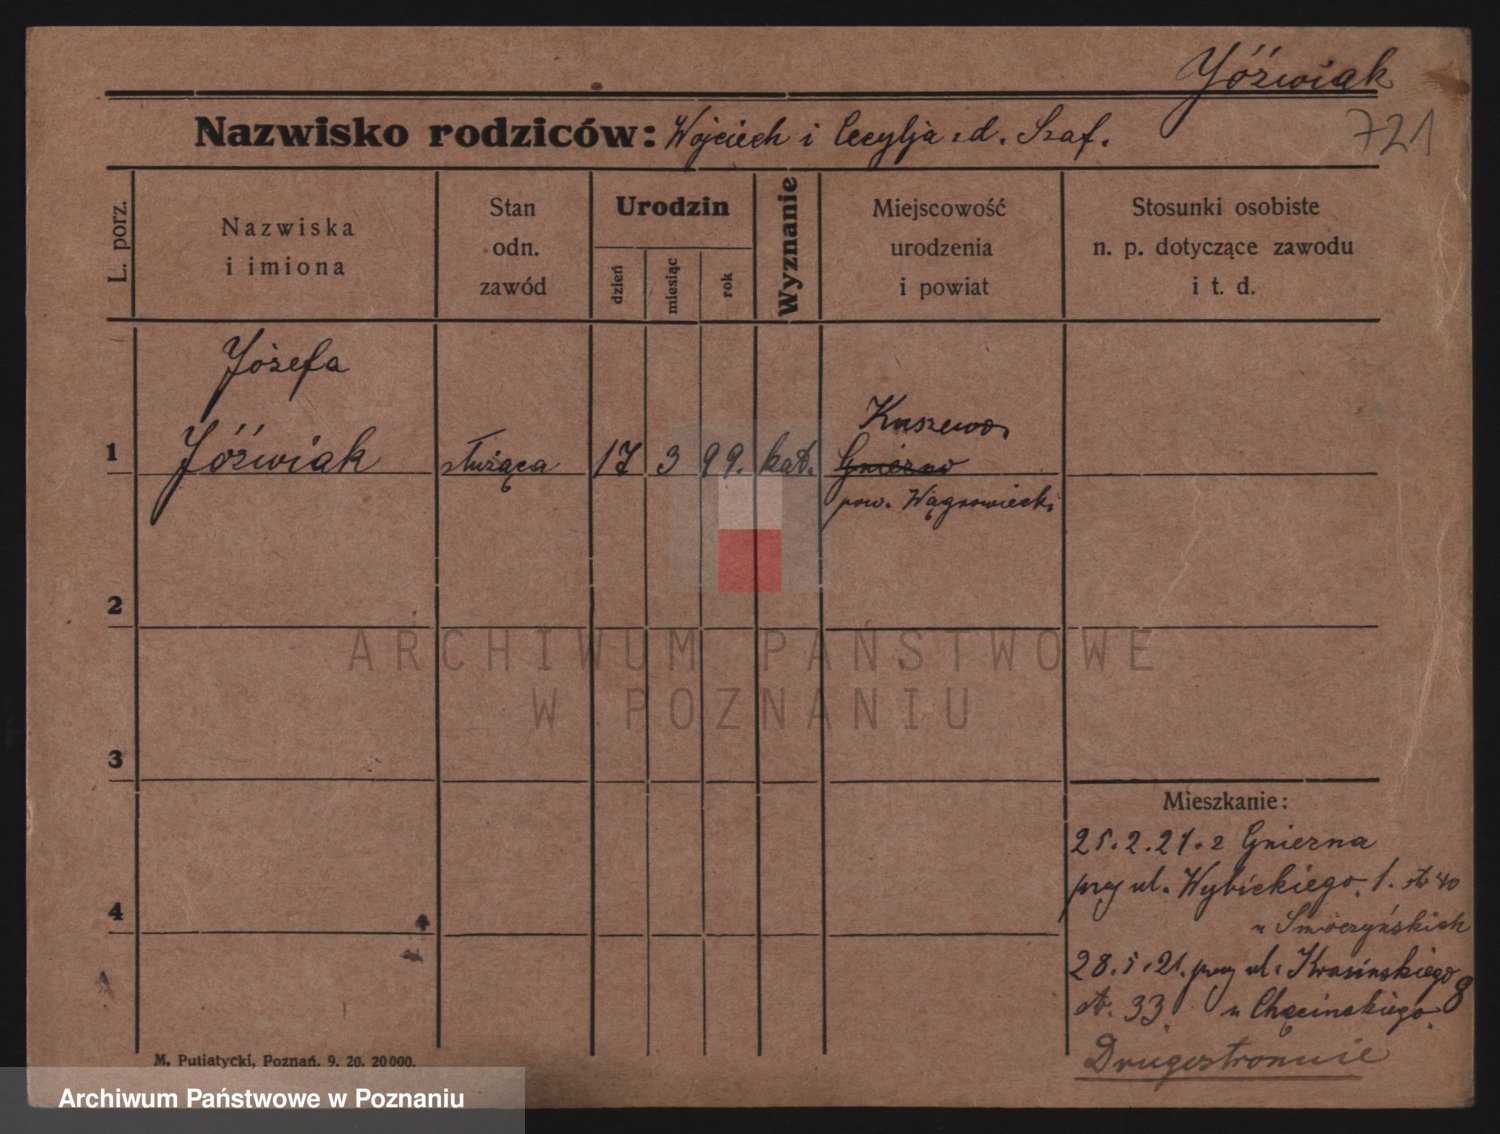 Jóźwiak
721
Nazwisko rodziców: Wojciech i Cecylja zd. Szaf.
L. porz.
Nazwiska
i imiona
Stan
odn.
zawód
Urodzin
dzień
miesiąc
rok
Wyznanie
Miejscowość
urodzenia
i powiat
Stosunki osobiste
n. p. dotyczące zawodu
i t. d.
Józefa
Kuszewo,
1 Jóźwiak służąca 17 3 99. kat. Gniezno
pow. Wągrowiecki
2
ARCHIWUM PAŃSTWOWE
W POZNANIU
3
Mieszkanie:
25.2.21. z Gniezna
przy ul. Wybickiego 1. str 40
u Smoczyńskich
28.5.21. przy ul. Krasińskiego 8
str. 33 u Chęcińskiego.
Drugostronnie
4
M. Putiatycki, Poznań. 9. 20. 20000.
Archiwum Państwowe w Poznaniu